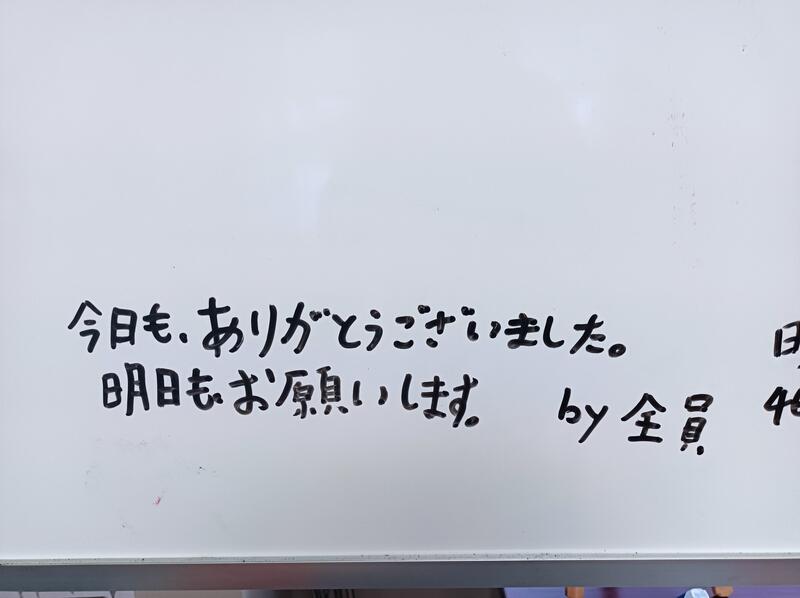 今日も、ありがとうございました。
明日も、お願いします。
by 全員